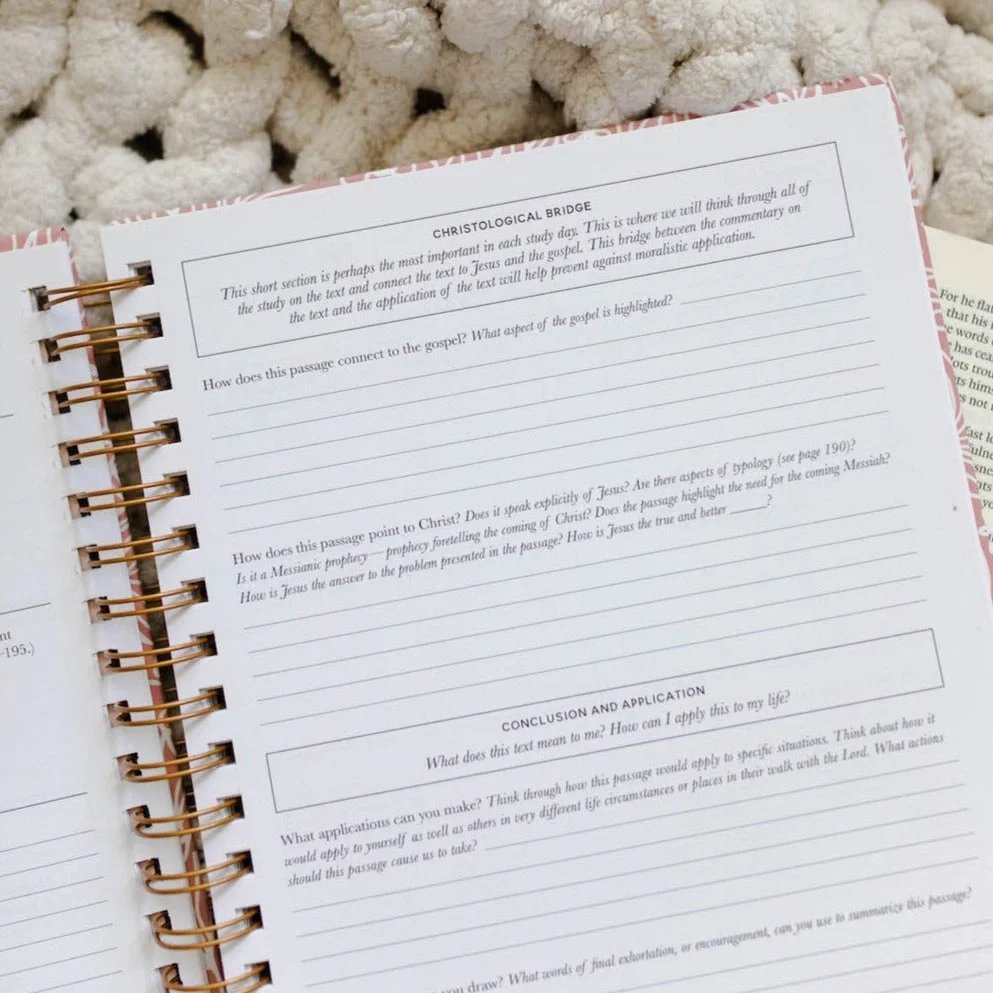 CHRISTOLOGICAL BRIDGE
This short section is perhaps the most important in each study day. This is where we will think through all of
the study on the text and connect the text to Jesus and the gospel. This bridge between the commentary on
the text and the application of the text will help prevent against moralistic application.
How does this passage connect to the gospel? What aspect of the gospel is highlighted?
How does this passage point to Christ? Does it speak explicitly of Jesus? Are there aspects of typology (see page 190)?
Is it a Messianic prophecy—prophecy foretelling the coming of Christ? Does the passage highlight the need for the coming Messiah?
How is Jesus the answer to the problem presented in the passage? How is Jesus the true and better _____?
CONCLUSION AND APPLICATION
What does this text mean to me? How can I apply this to my life?
What applications can you make? Think through how this passage would apply to specific situations. Think about how it
would apply to yourself as well as others in very different life circumstances or places in their walk with the Lord. What actions
should this passage cause us to take?
you draw? What words of final exhortation, or encouragement, can you use to summarize this passage?
-195.)
For he
that his
words
has
not